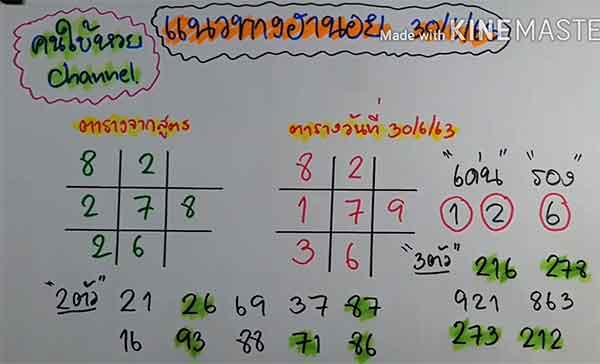 คนใบ้หวย
Channel.
แนวทางฮานอย 30/6/63
Made with KINEMASTER
ตารางจากสูตร
8 2
2 7 8
2 6
ตารางวันที่ 30/6/63
8 2
1 7 9
3 6
"เด่น" "รอง"
1 2 6
"3ตัว" 216 278
921 863
273 212
"2ตัว" 21 26 69 37 87
16 93 88 71 86